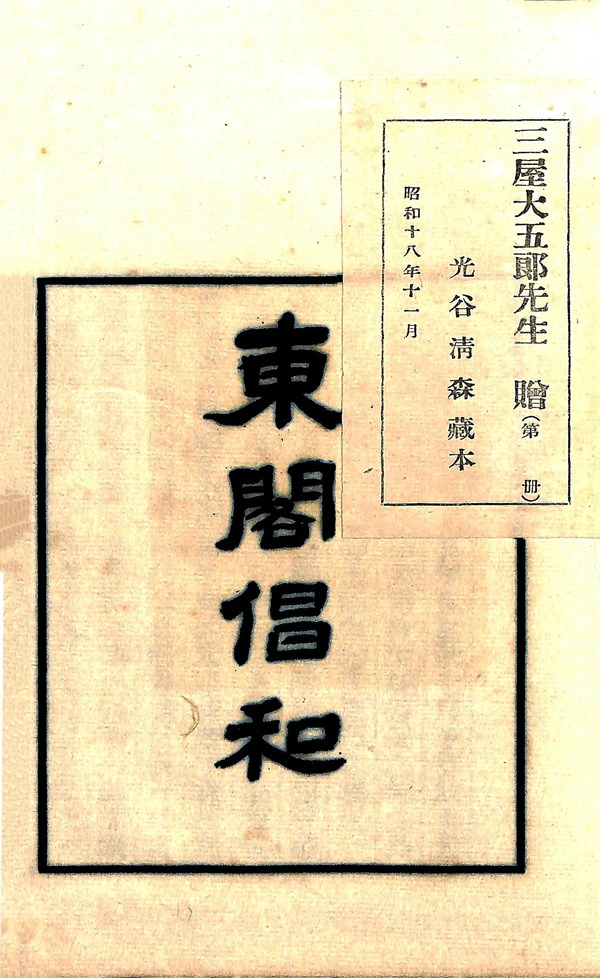 三屋大五郎先生 贈(第 冊)
光谷清森藏本
昭和十八年十一月
東閣倡和